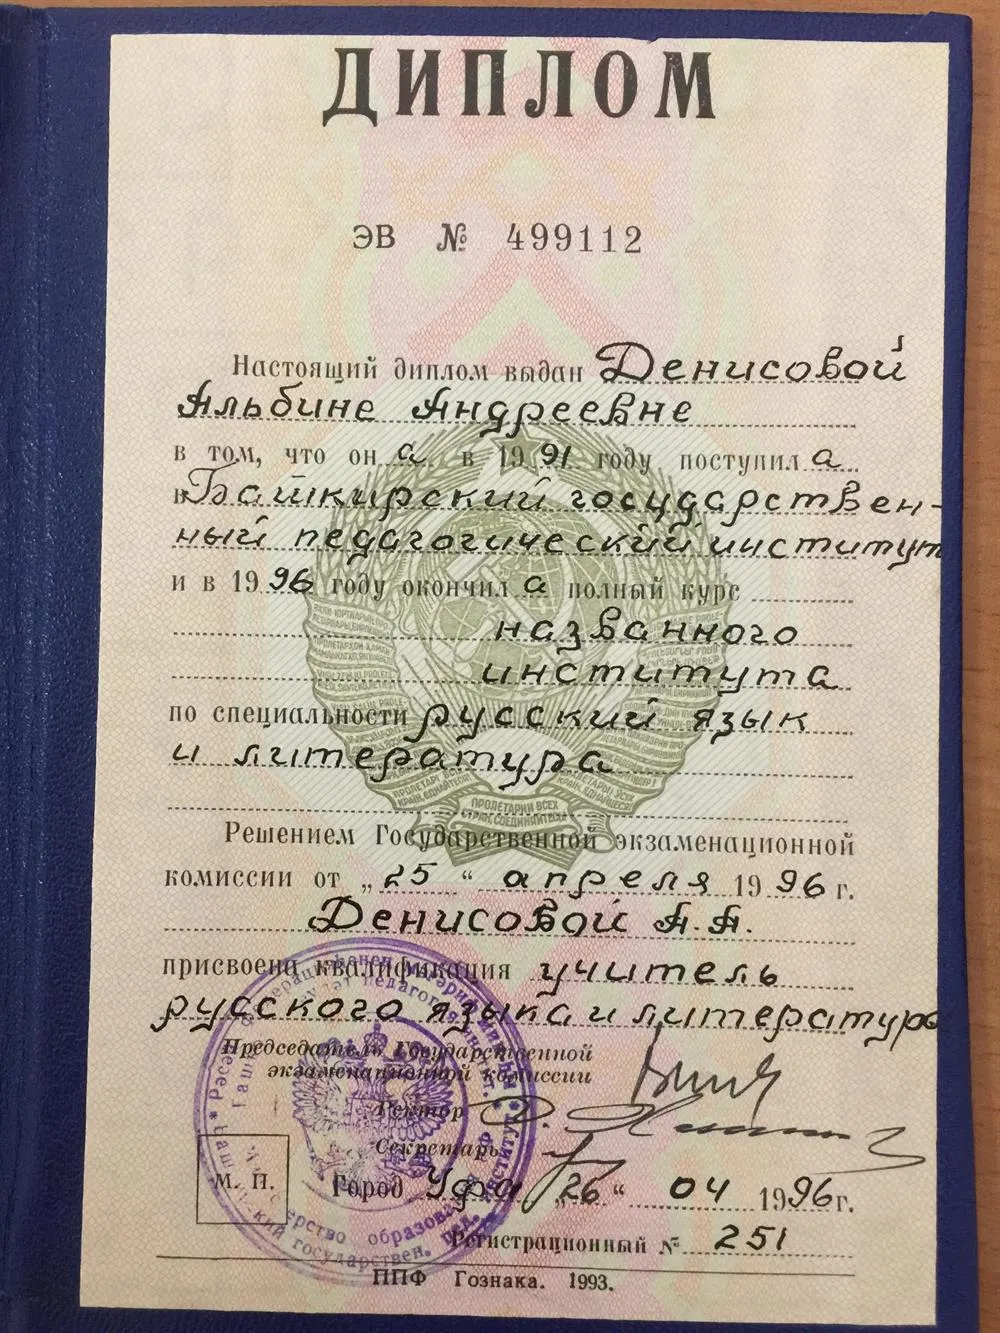 ДИПЛОМ
ЭВ № 499112
Настоящий диплом выдан Денисовой
Альбине Андреевне
в том, что она в 1991 году поступила
в Башкирский государствен-
ный педагогический институт
и в 1996 году окончила полный курс
названного
института
по специальности русский язык
и литература
ПРОЛЕТАРИИ ВСЕХ
СТРАН, СОЕДИНЯЙТЕСЬ!
Решением Государственной экзаменационной
комиссии от „25“ апреля 1996 г.
Денисовой А.А.
присвоена квалификация учитель
русского языка и литературы
Председатель Государственной
экзаменационной комиссии
Ректор
Секретарь
М. П.
Город Уфа „26“ 04 1996 г.
Регистрационный № 251
ППФ Гознака. 1993.